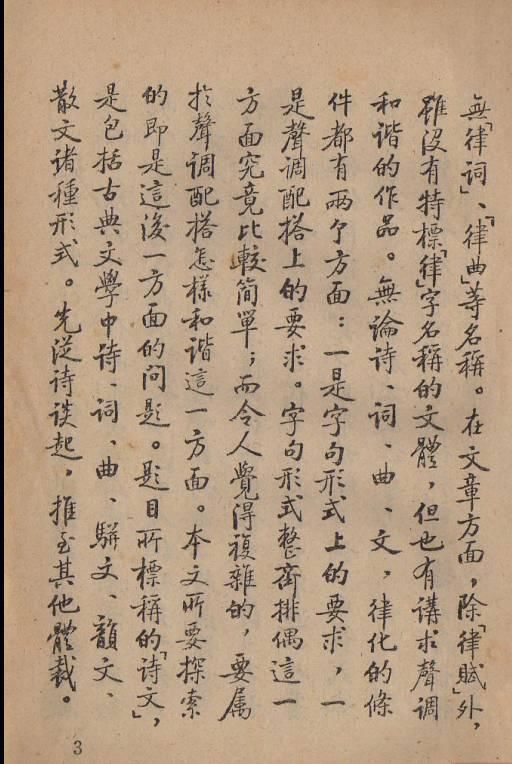 無「律詞」、「律曲」等名稱。在文章方面，除「律賦」外，
雖没有特標「律」字名稱的文體，但也有講求聲調
和諧的作品。無論詩、詞、曲、文，律化的條
件都有兩个方面：一是字句形式上的要求，一
是聲調配搭上的要求。字句形式整齊排偶這一
方面究竟比較簡單；而令人覺得複雜的，要属
於聲調配搭怎樣和諧這一方面。本文所要探索
的即是這後一方面的问题。题目所標稱的「詩文」，
是包括古典文學中詩、詞、曲、駢文、韻文、
散文诸種形式。先從詩談起，推至其他體裁。
3